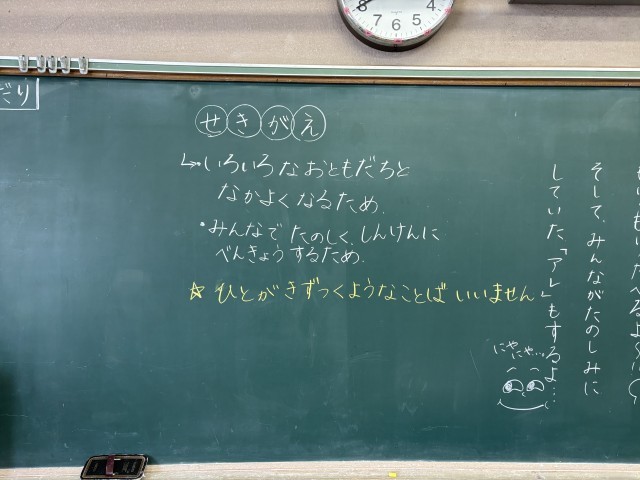 だり
せきがえ
↳いろいろなおともだちと
なかよくなるため.
・みんなで たのしく、しんけんに
べんきょうするため.
☆ ひとがきずつくようなことばいいません
そして、みんながたのしみに
していた、「アレ」もするよ…
にやにや…
8 7 6 5 4